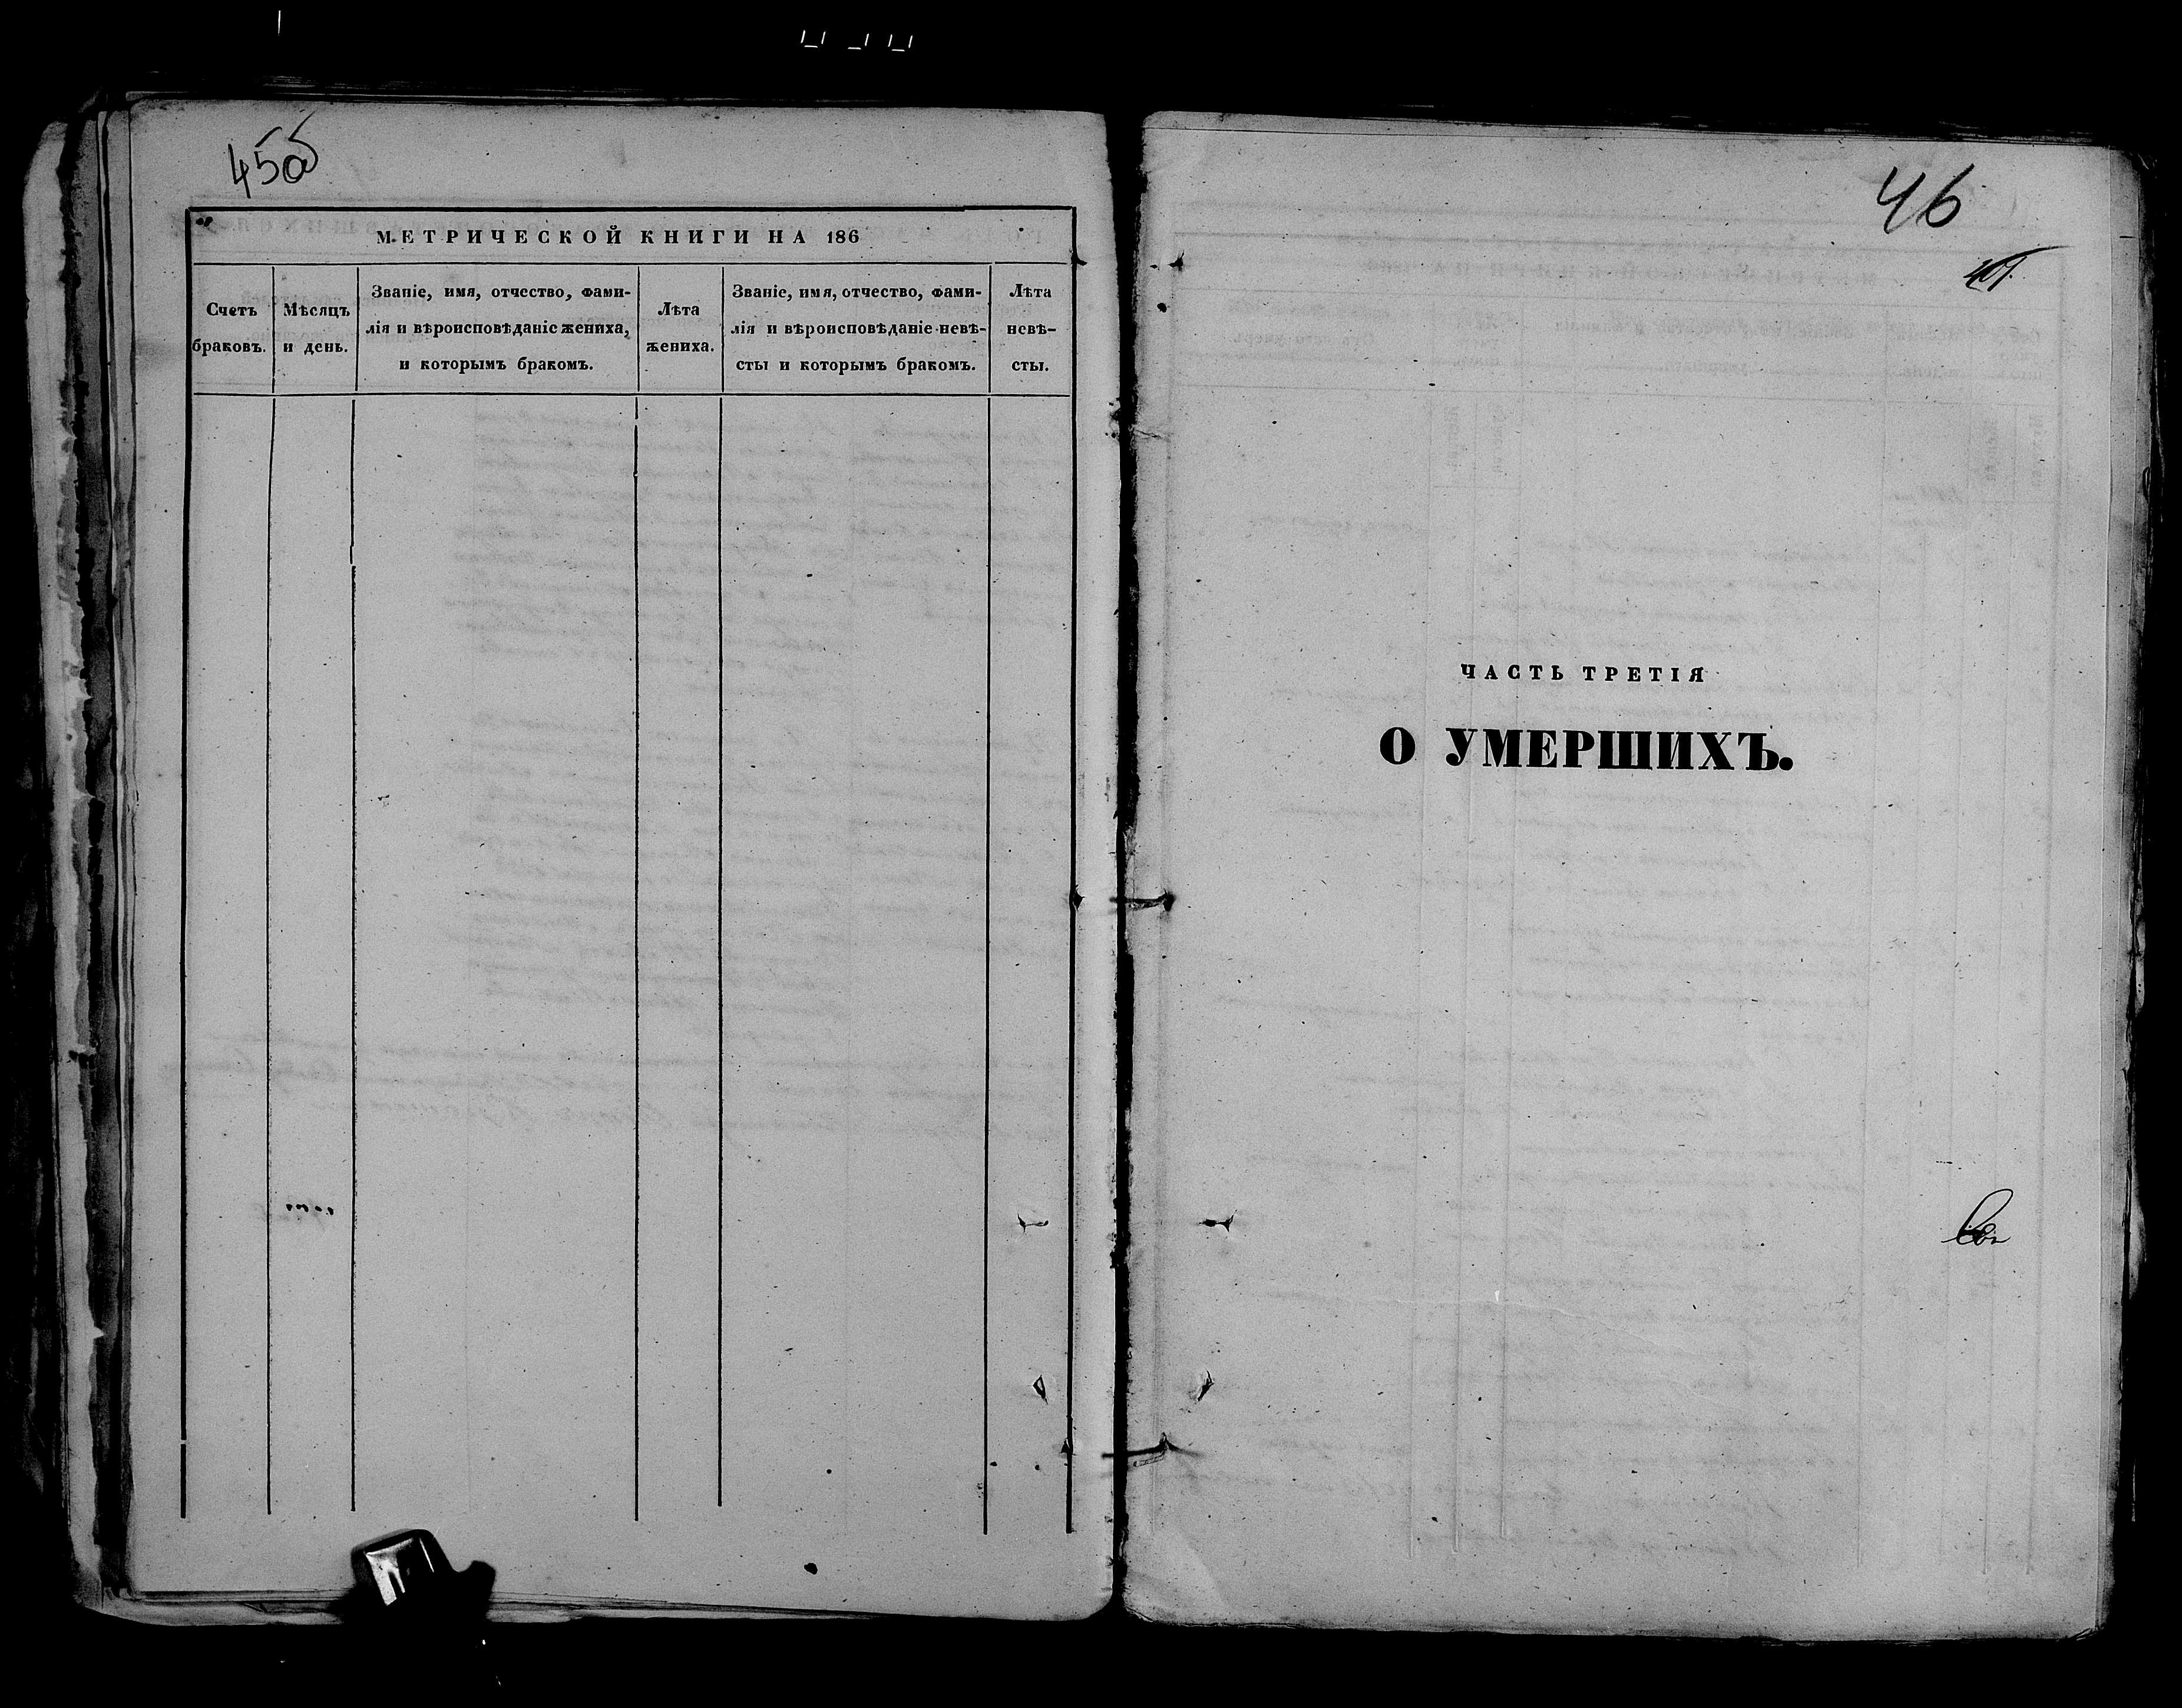 45об
МЕТРИЧЕСКОЙ КНИГИ НА 186
Счетъ
браковъ.
Мѣсяцъ
и день.
Званіе, имя, отчество, фами-
лія и вѣроисповѣданіе жениха,
и которымъ бракомъ.
Лѣта
жениха.
Званіе, имя, отчество, фами-
лія и вѣроисповѣданіе невѣ-
сты и которымъ бракомъ.
Лѣта
невѣ-
сты.
46
ЧАСТЬ ТРЕТІЯ
О УМЕРШИХЪ.